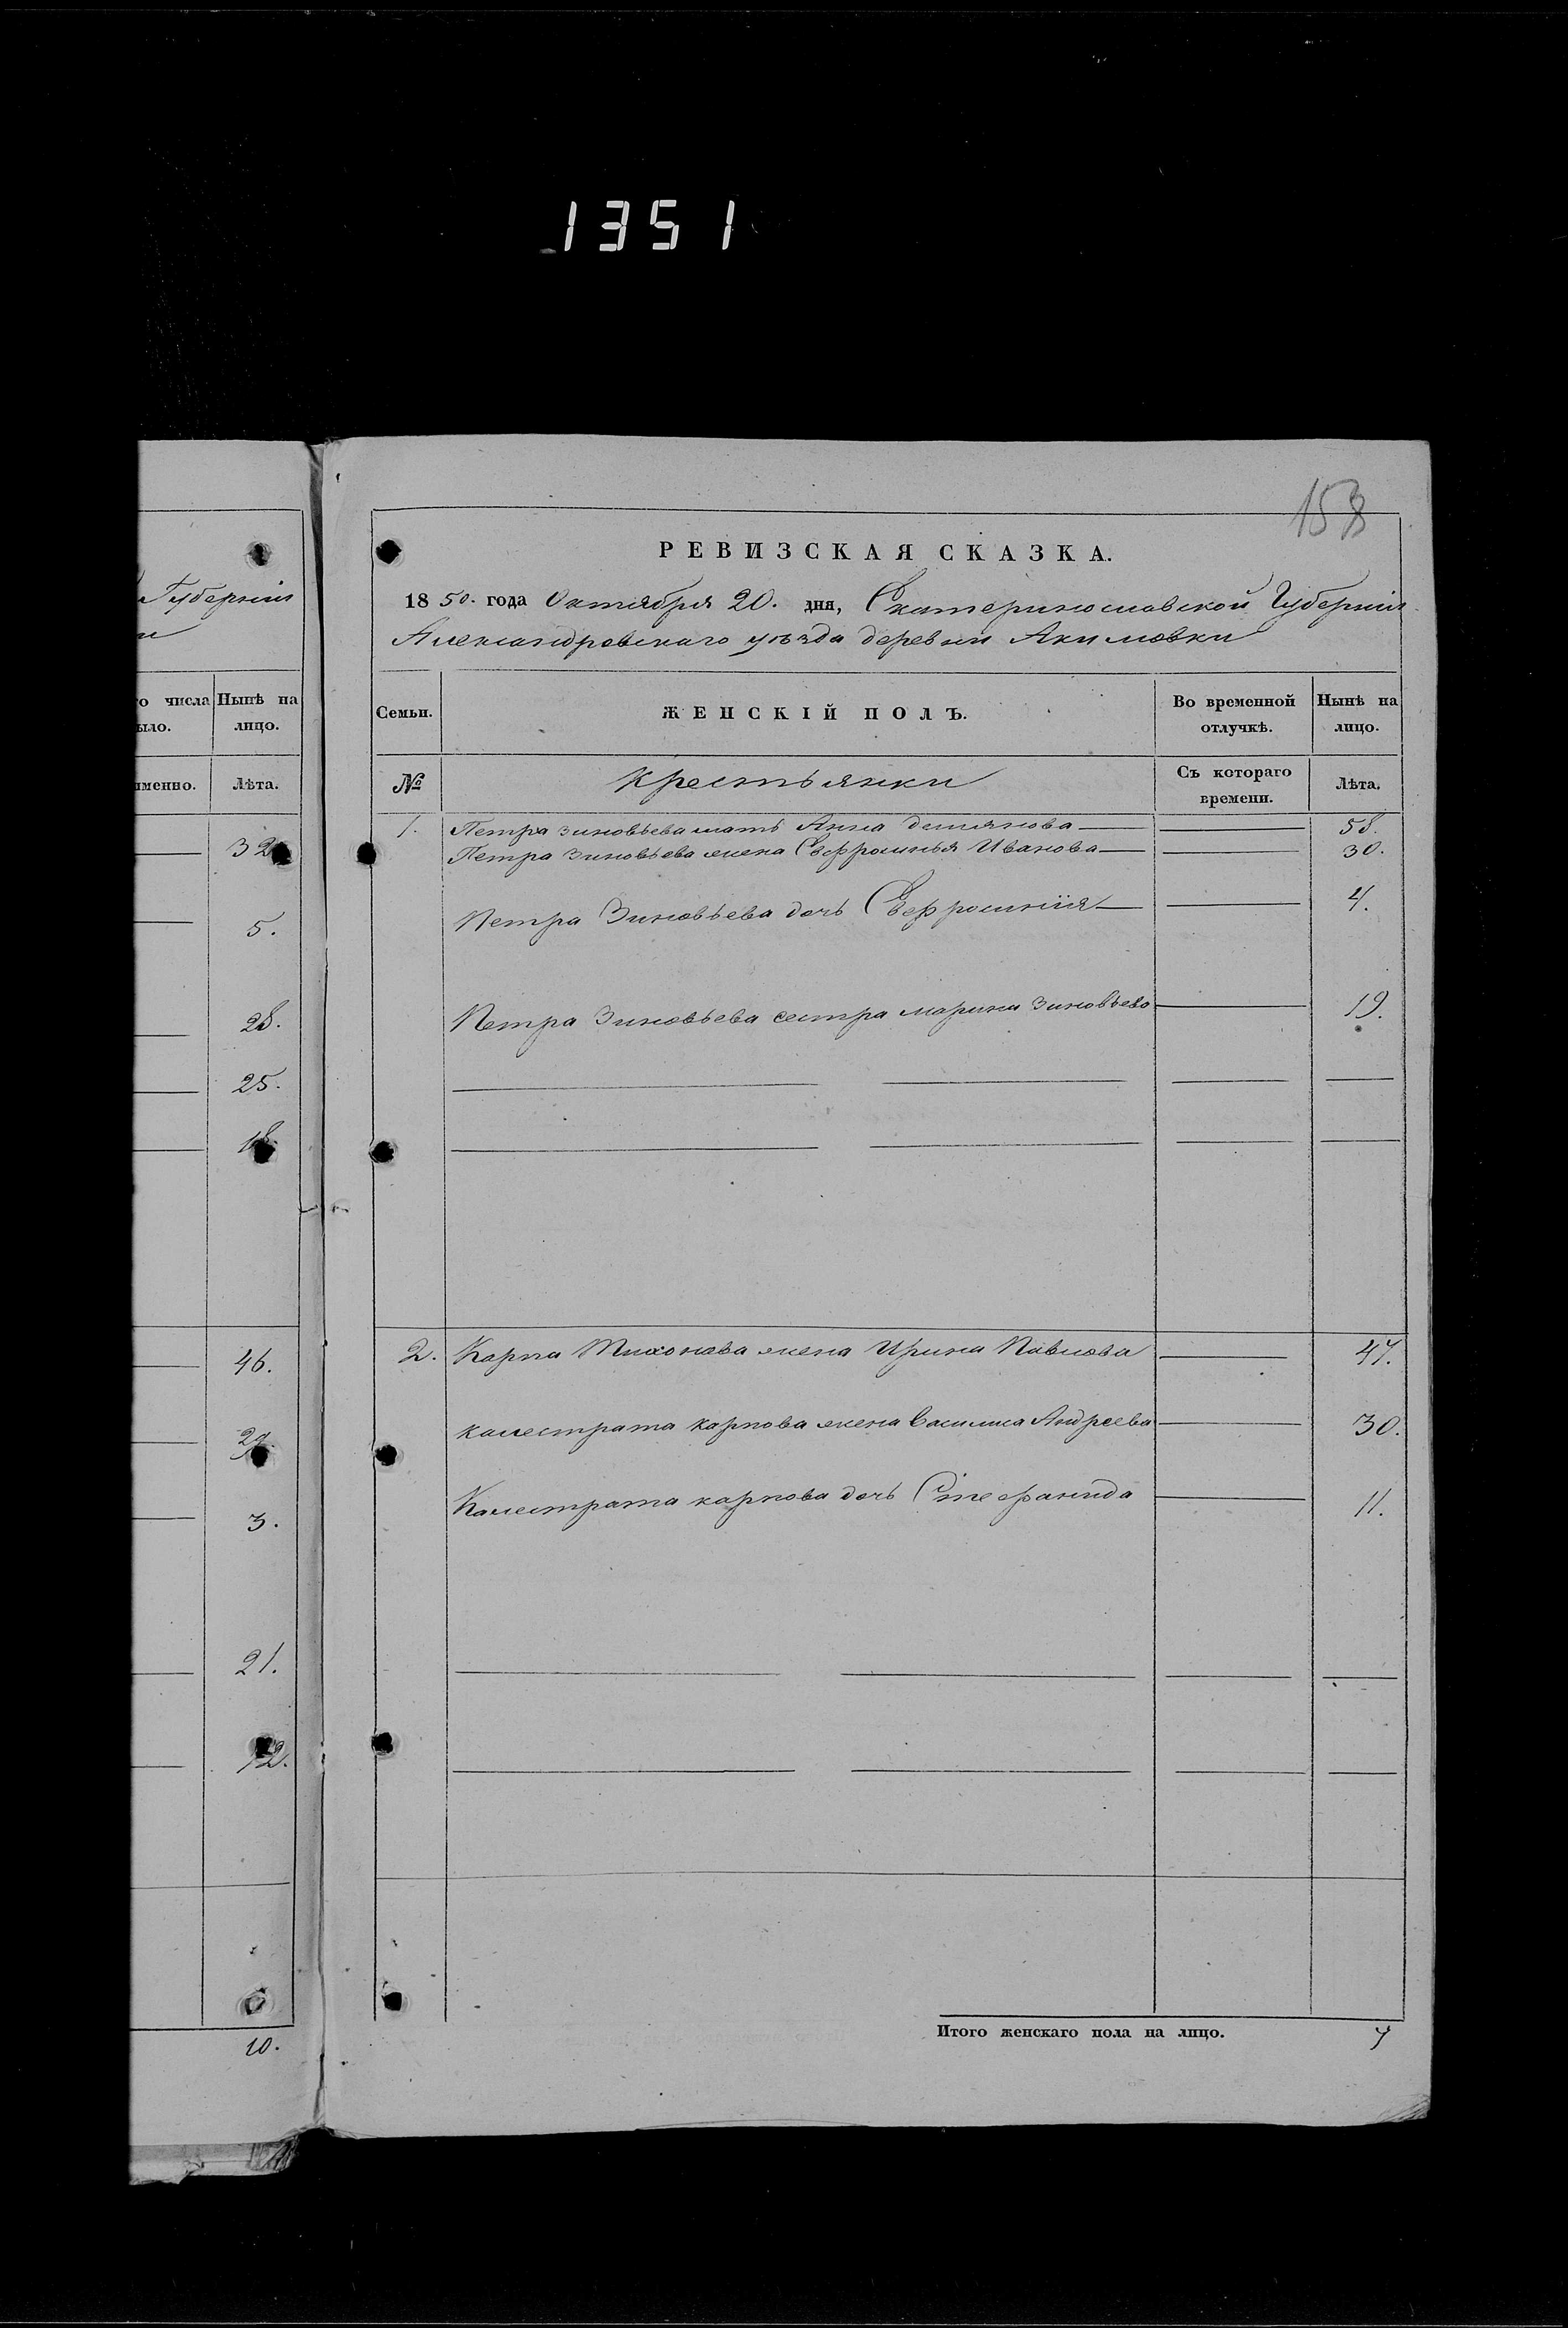 1351
158
Губерніи
о числа Нынѣ на
ыло. лицо.
именно. Лѣта.
32
5.
28.
25.
18.
46.
29.
3.
21.
12.
10.
РЕВИЗСКАЯ СКАЗКА.
1850. года Октября 20. дня, Екатеринославской Губерніи
Александровскаго уѣзда деревни Акимовки
Семьи. ЖЕНСКІЙ ПОЛЪ. Во временной отлучкѣ. Нынѣ на лицо.
№ Крестьянки Съ котораго времени. Лѣта.
1. Петра Зиновьева мать Анна Демянова 58.
Петра Зиновьева жена Евфросинья Иванова 30.
Петра Зиновьева дочь Евфросинія 4.
Петра Зиновьева сестра Марина Зиновьева 19.
2. Карпа Тихонова жена Ирина Павлова 47.
Калестрата Карпова жена Василиса Андреева 30.
Калестрата Карпова дочь Стефанида 11.
Итого женскаго пола на лицо. 7